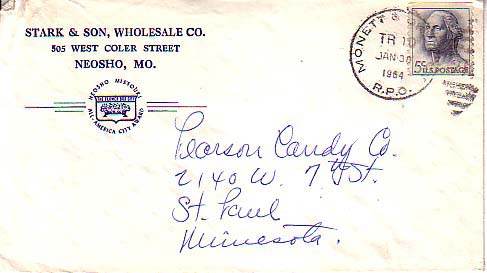 STARK & SON, WHOLESALE CO.
505 WEST COLER STREET
NEOSHO, MO.
NEOSHO MISSOURI
ALL-AMERICA CITY AWARD
MONETT &
TR 10
JAN 30
1964
R.P.O.
5¢ U.S. POSTAGE
Pearson Candy Co.
2140 W. 7th St.
St. Paul
Minnesota.